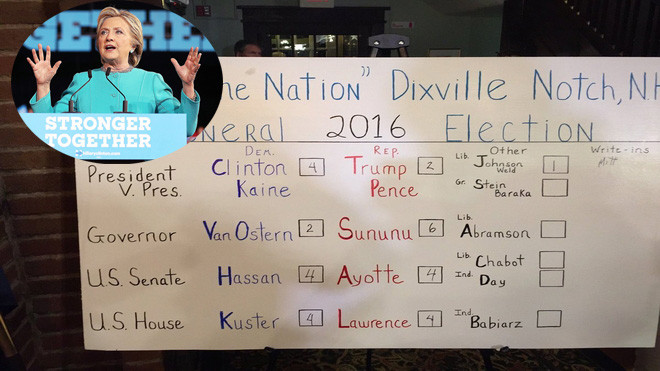 STRONGER
TOGETHER
he Nation" Dixville Notch, NH
neral 2016 Election
Dem. Rep. Other Write-ins
President Clinton 4 Trump 2 Lib. Johnson Weld 1 Mitt
V. Pres. Kaine Pence Gr. Stein Baraka
Governor Van Ostern 2 Sununu 6 Lib. Abramson
U.S. Senate Hassan 4 Ayotte 4 Lib. Chabot
Ind. Day
U.S. House Kuster 4 Lawrence 4 Ind Babiarz